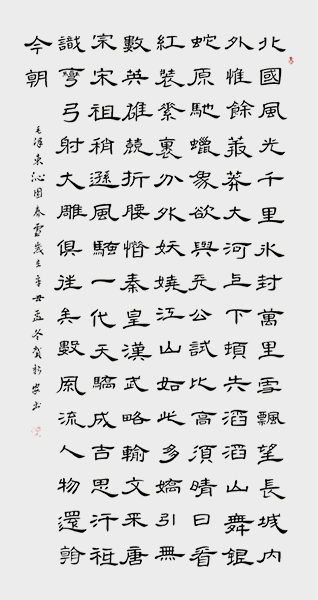 北國風光千里氷封萬里雪飄望長城内
外惟餘莽莽大河上下頓失滔滔山舞銀
蛇原馳蠟象欲與天公試比高須晴日看
紅裝素裹分外妖嬈江山如此多嬌引無
數英雄競折腰惜秦皇漢武略輸文采唐
宗宋祖稍遜風騷一代天驕成吉思汗祗
識彎弓射大雕俱往矣數風流人物還看
今朝
毛澤東沁園春雪歲在辛丑孟冬